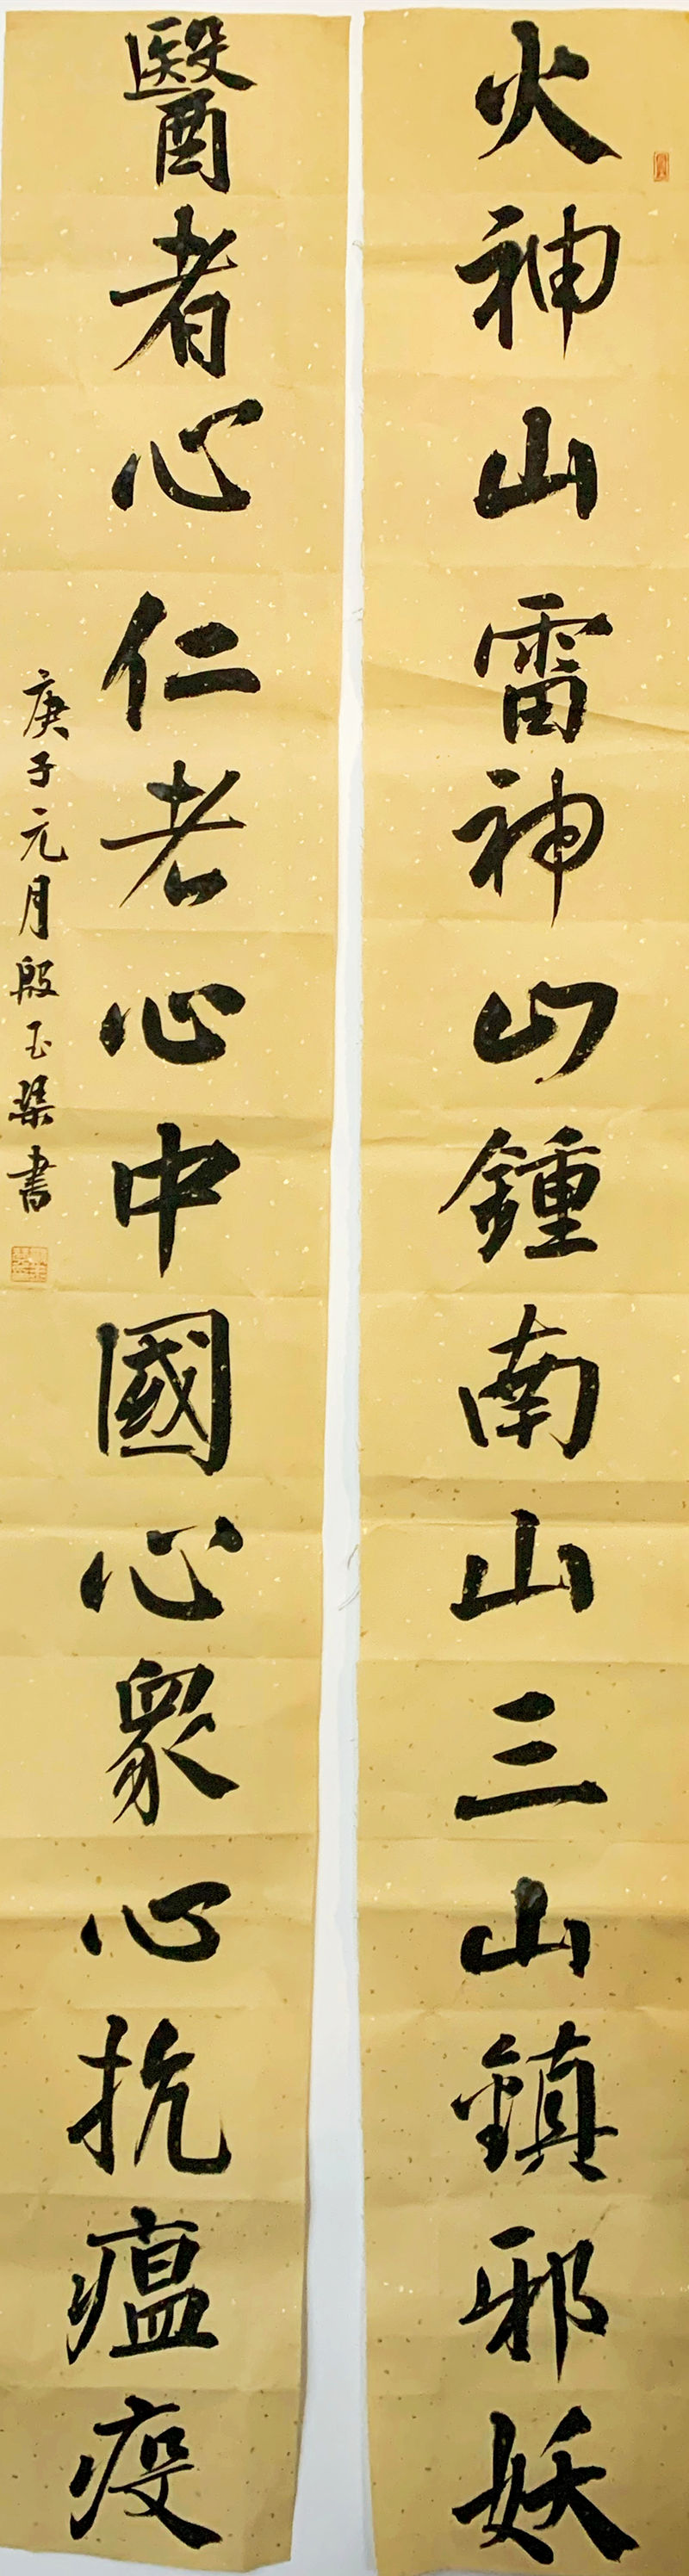 火神山雷神山鍾南山三山鎮邪妖
醫者心仁者心中國心衆心抗瘟疫
庚子元月殷玉渠書